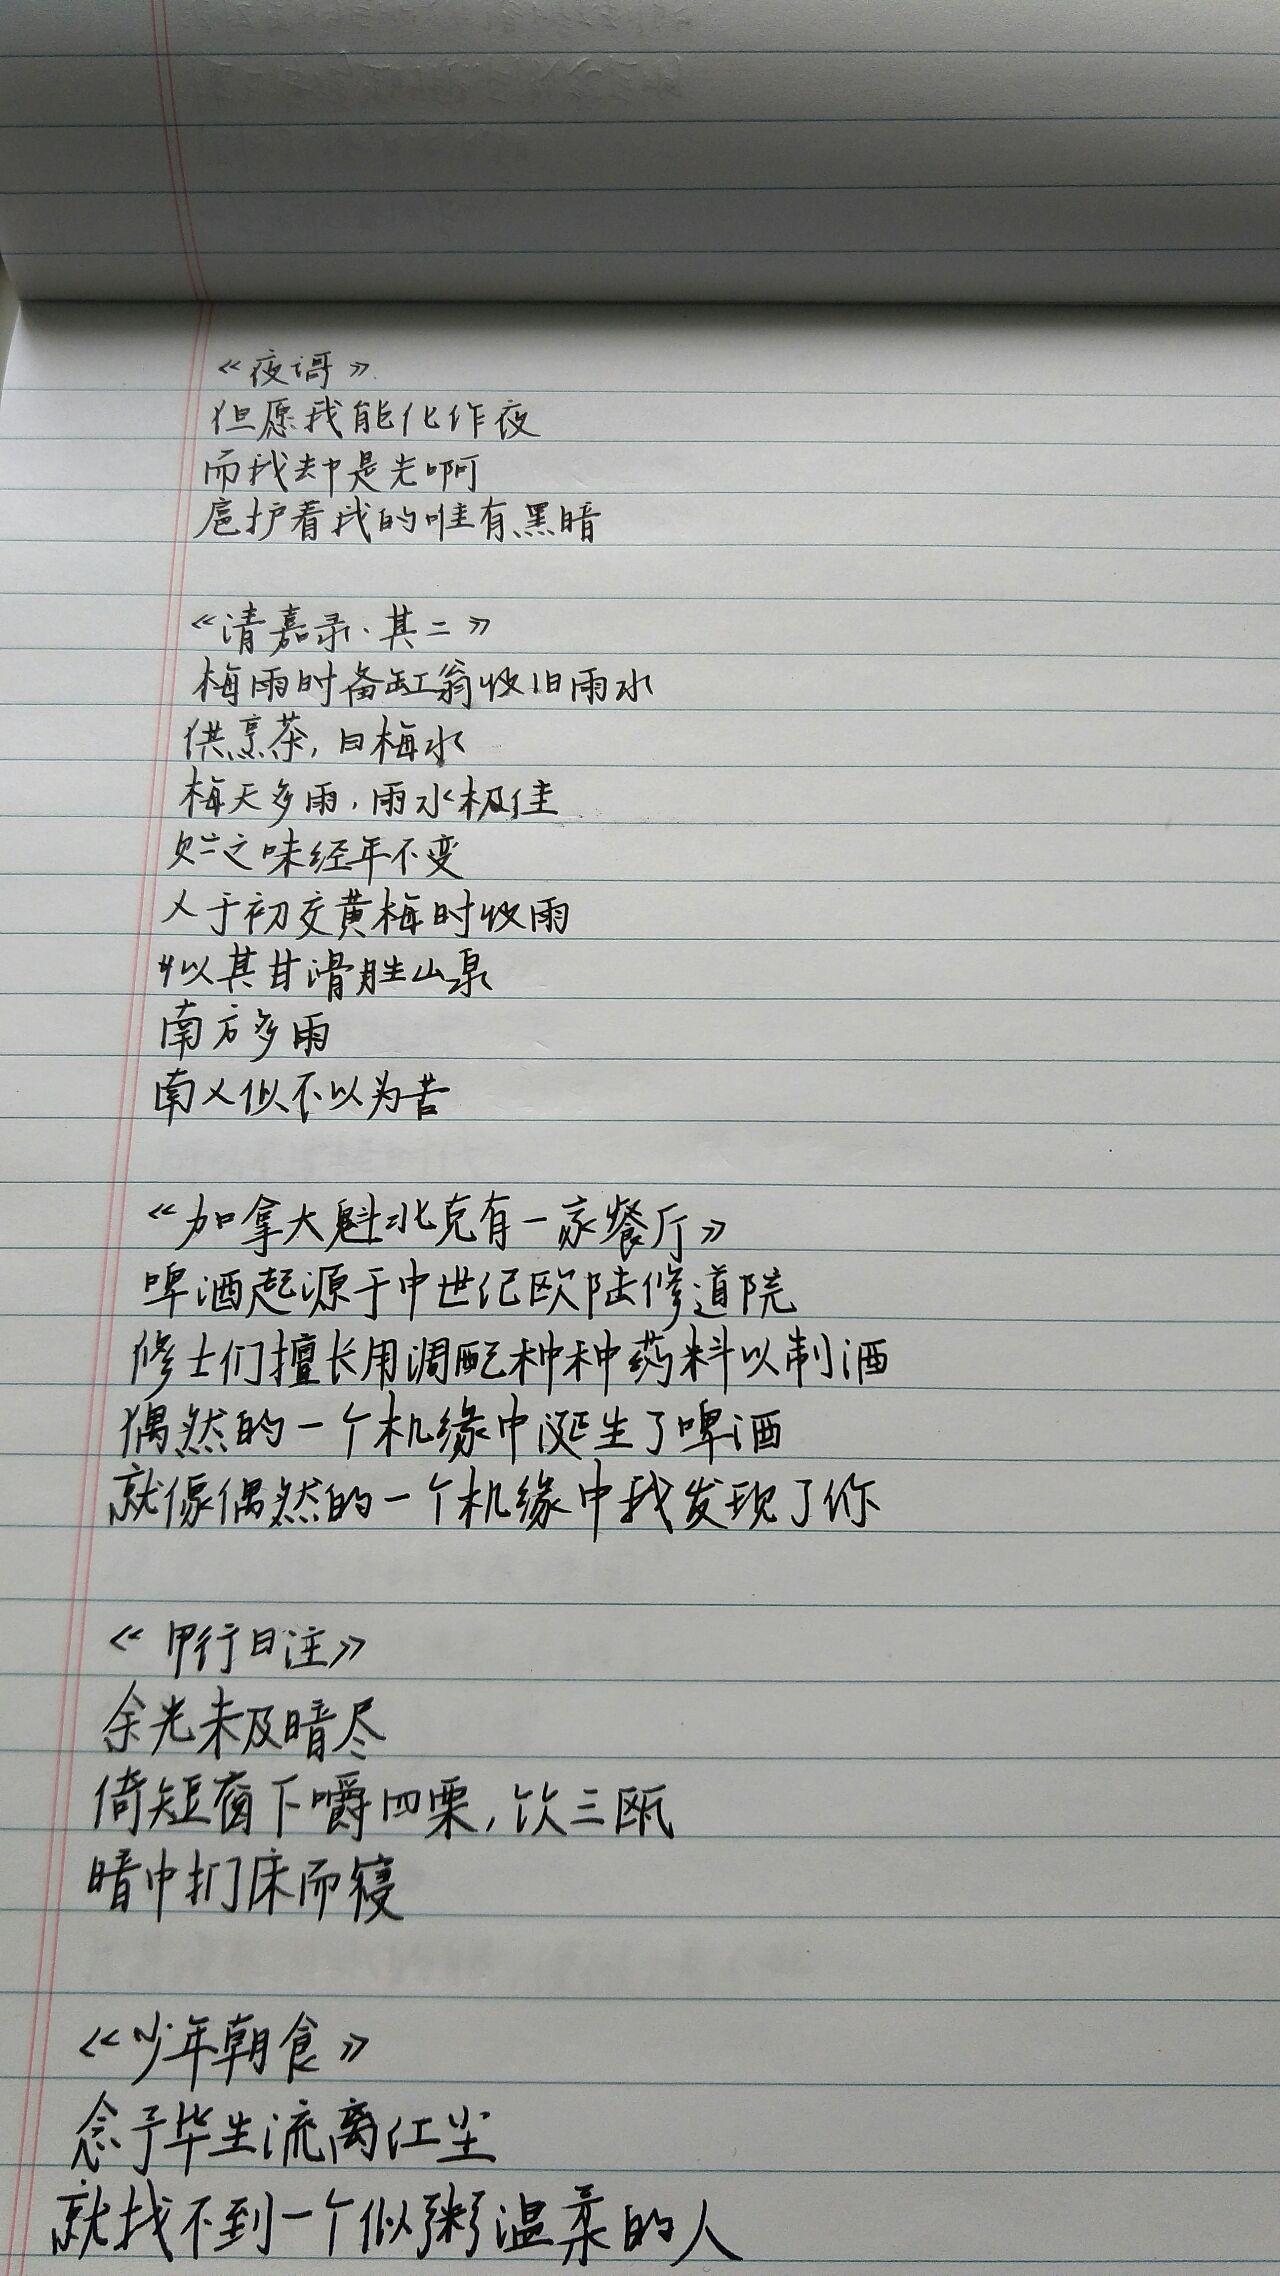 《夜语》
但愿我能化作夜
而我却是光啊
庇护着我的唯有黑暗
《清嘉录·其二》
梅雨时备缸瓮收旧雨水
供烹茶，曰梅水
梅天多雨，雨水极佳
贮之味经年不变
人于初交黄梅时收雨
以其甘滑胜山泉
南方多雨
南人似不以为苦
《加拿大魁北克有一家餐厅》
啤酒起源于中世纪欧陆修道院
修士们擅长用调配种种药料以制酒
偶然的一个机缘中诞生了啤酒
就像偶然的一个机缘中我发现了你
《甲行日注》
余光未及暗尽
倚短窗下嚼四栗，饮三瓯
暗中扪床而寝
《少年朝食》
念予毕生流离红尘
就找不到一个似粥温柔的人